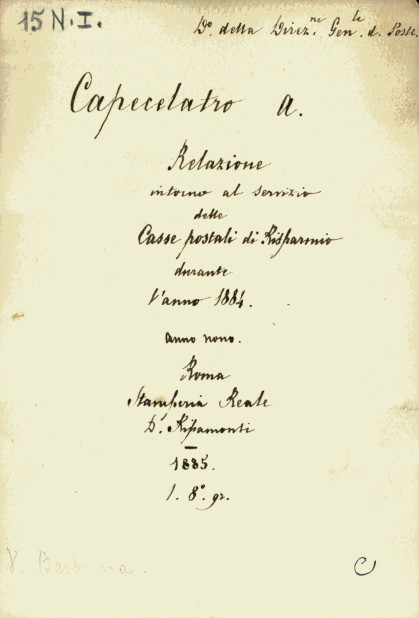 15 N. I.
Do. della Direz.ne Gen.le d. Poste.
Capecelatro A.
Relazione
intorno al servizio
delle
Casse postali di Risparmio
durante
l'anno 1884.
anno nono.
Roma
Stamperia Reale
D. Ripamonti
1885.
1. 8.° gr.
V.
C